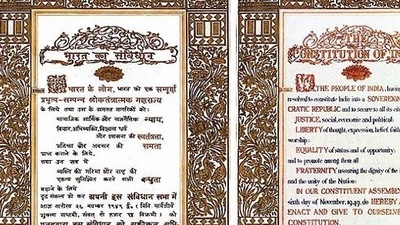 भारत का संविधान
हम भारत के लोग, भारत को एक सम्पूर्ण
प्रभुत्व-सम्पन्न लोकतंत्रात्मक गणराज्य
के लिये तथा उस के समस्त नागरिकों को:
सामाजिक आर्थिक और राजनैतिक न्याय,
विचार,अभिव्यक्ति,विश्वास धर्म
और उपासना की स्वतंत्रता,
प्रतिष्ठा और अवसर की समता
प्राप्त कराने के लिये,
तथा उन सब में
व्यक्ति की गरिमा और राष्ट्र की
एकता सुनिश्चित करने वाली बन्धुता
बढ़ाने के लिये
दृढ़ संकल्प हो कर अपनी इस संविधान सभा में
आज तारीख २६ नवम्बर १९४९ ई० (मिति मार्गशीर्ष
शुक्ला सप्तमी, सम्वत् दो हज़ार छह विक्रमी) को
THE
CONSTITUTION OF IN
WE, THE PEOPLE OF INDIA, having
resolved to constitute India into a SOVEREIGN
CRATIC REPUBLIC and to secure to all its ci
JUSTICE, social, economic and political;
LIBERTY of thought, expression, belief, faith
worship;
EQUALITY of status and of opportunity;
and to promote among them all
FRATERNITY assuring the dignity of the
and the unity of the Nation;
IN OUR CONSTITUENT ASSEMB
sixth day of November, 1949, do HEREBY A
ENACT AND GIVE TO OURSELVE
CONSTITUTION.